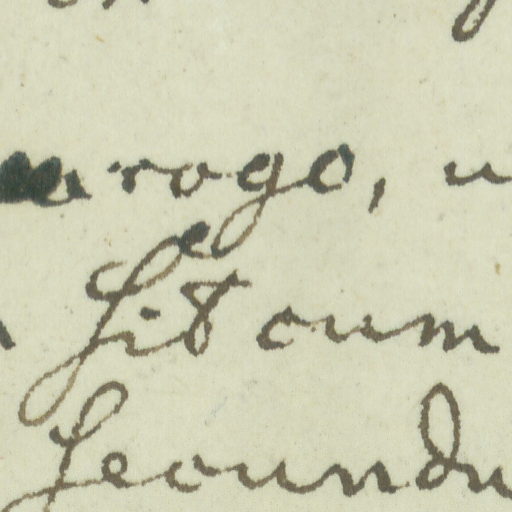 rogo, u
sit cum
secundu